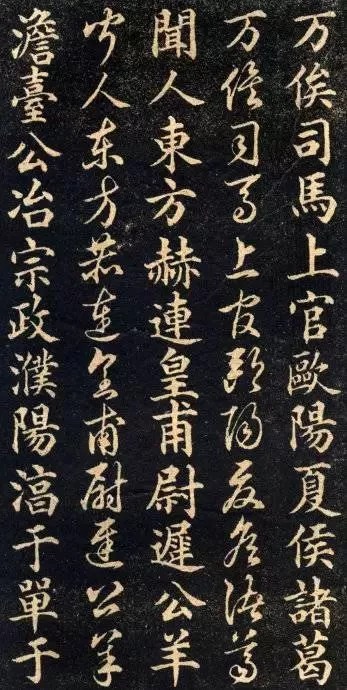 万俟司馬上官歐陽夏侯諸葛
万俟司馬上官歐陽夏侯諸葛
聞人東方赫連皇甫尉遲公羊
聞人東方赫連皇甫尉遲公羊
澹臺公冶宗政濮陽淳于單于